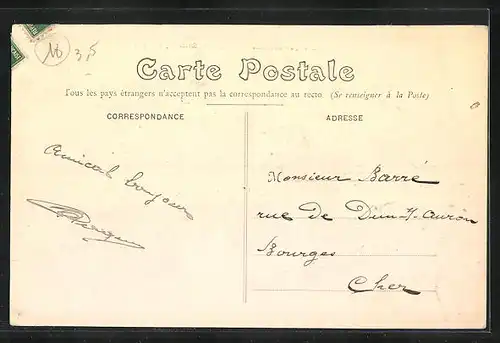 16 3,5
Carte Postale
Tous les pays étrangers n'acceptent pas la correspondance au recto. (Se renseigner à la Poste)
CORRESPONDANCE
ADRESSE
Amical bonjour
Monsieur Barré
rue de Dun-s/-Auron
Bourges
Cher